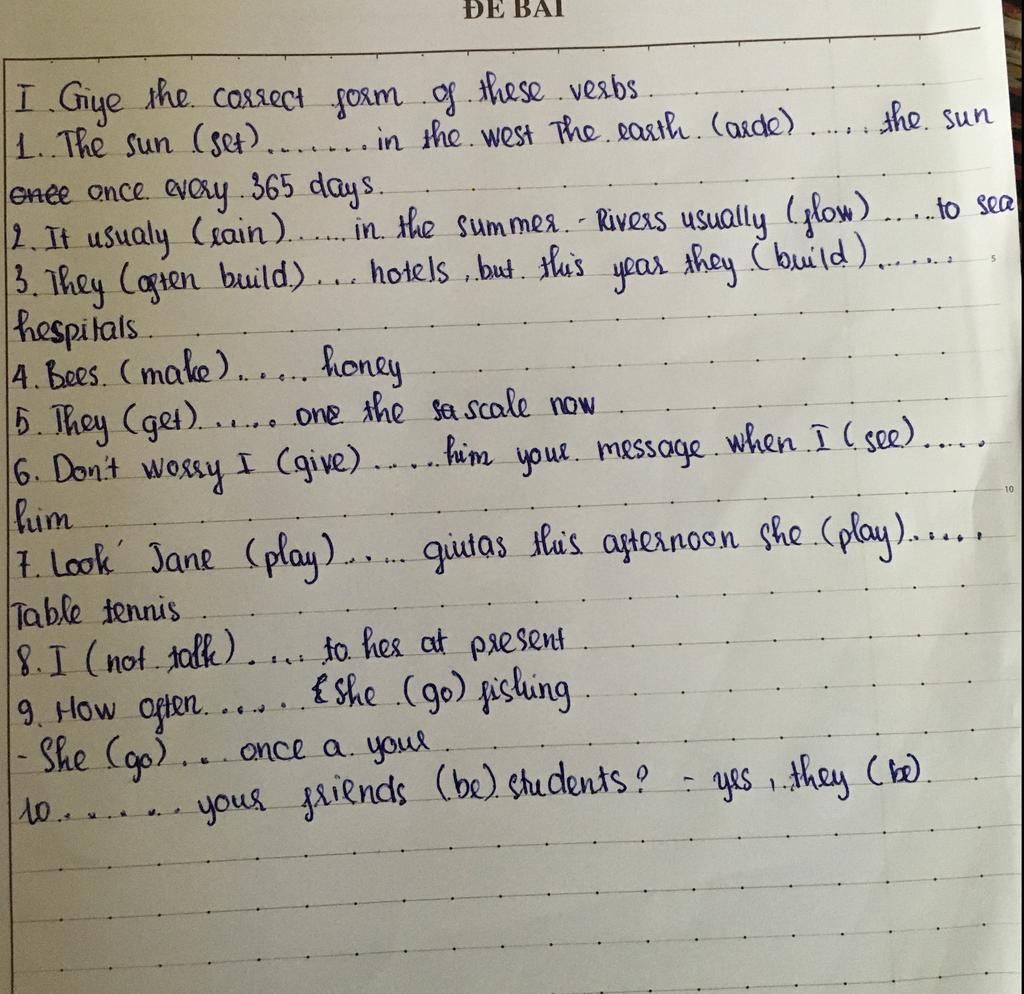 ĐỀ BÀI
I. Give the correct form of these verbs.
1. The sun (set)........in the west The earth (arde)..... the sun
once once every 365 days.
2. It usualy (rain)......in the summer - Rivers usually (flow).....to sea
5
3. They (often build)... hotels, but this year they (build)......
hospitals
4. Bees (make)..... honey
5. They (get)..... one the sa scale now
6. Don't worry I (give).....him your message when I (see).....
10
him
7. Look' Jane (play)..... giutas this afternoon she (play).....
Table tennis
8. I (not talk).... to her at present
9. How often...... she (go) fishing
- She (go)... once a your
10....... your friends (be) students? - yes, they (be).